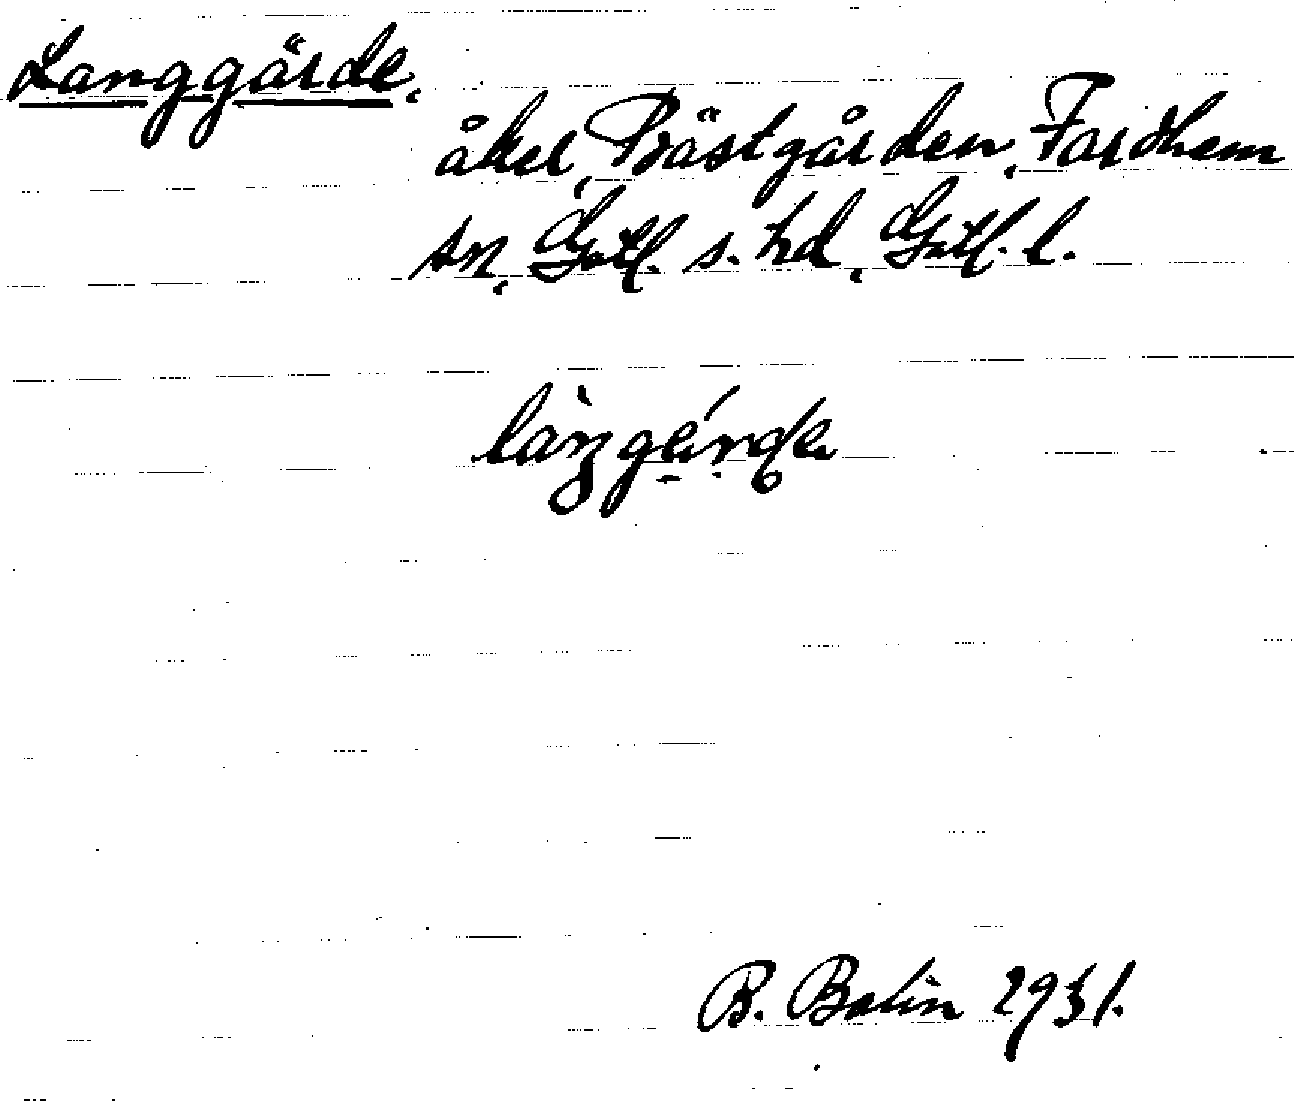 Langgärde,
åker, Prästgården, Fardhem
sn, Gotl. s. hd, Gotl. l.
B. Bolin 1931.